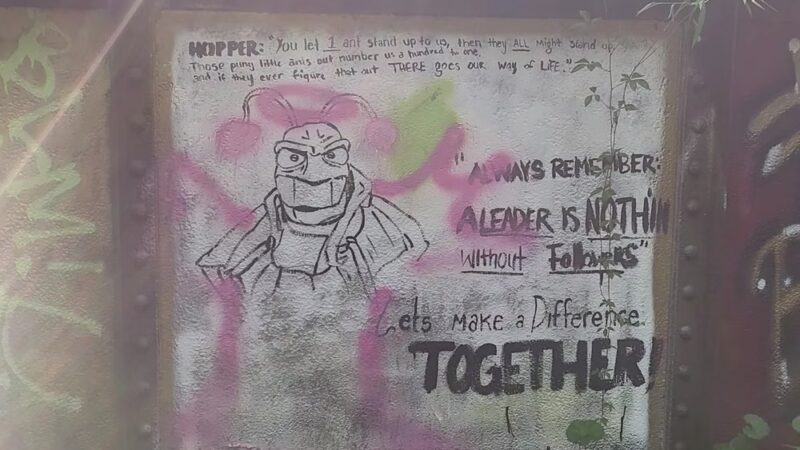 HOPPER: "You let 1 ant stand up to us, then they ALL might stand up.
Those puny little ants out number us a hundred to one,
and if they ever figure that out THERE goes our way of LIFE."
"ALWAYS REMEMBER:
A LEADER IS NOTHIN
Without Followers"
Lets MAKE a Difference
TOGETHER!